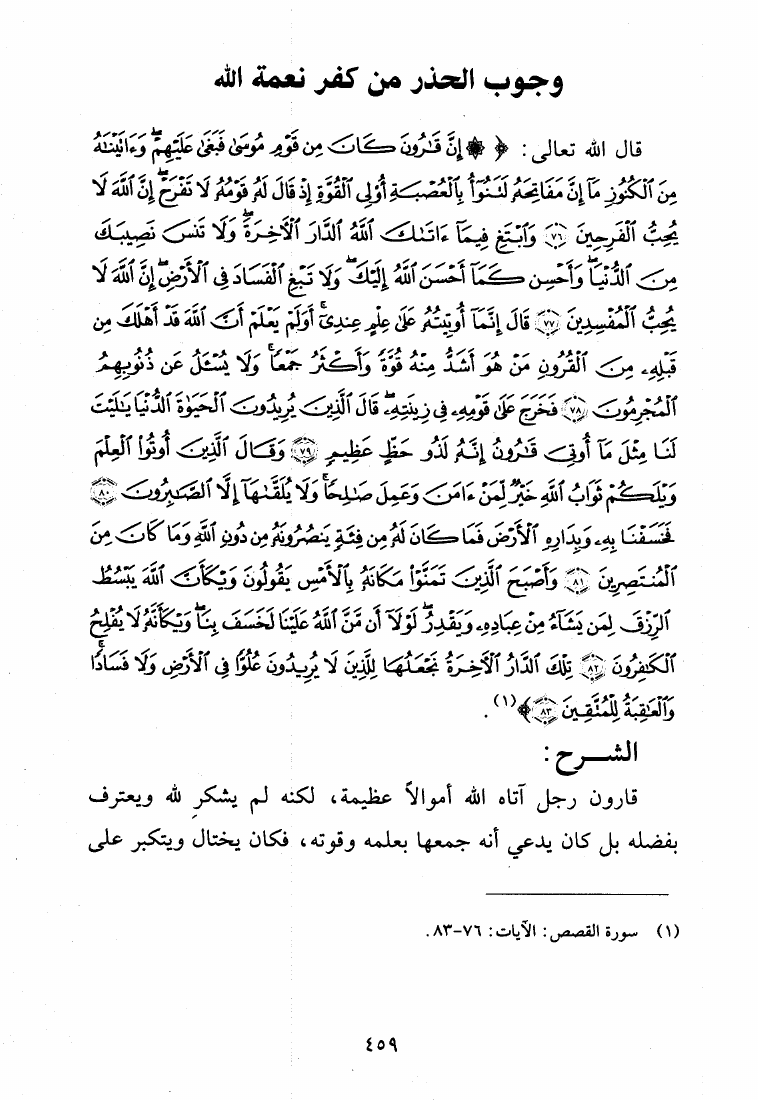 وجوب الحذر من كفر نعمة الله
قال الله تعالى: ﴿ ۞ إِنَّ قَٰرُونَ كَانَ مِن قَوْمِ مُوسَىٰ فَبَغَىٰ عَلَيْهِمْ ۖ وَءَاتَيْنَٰهُ
مِنَ ٱلْكُنُوزِ مَآ إِنَّ مَفَاتِحَهُۥ لَتَنُوٓأُ بِٱلْعُصْبَةِ أُو۟لِى ٱلْقُوَّةِ إِذْ قَالَ لَهُۥ قَوْمُهُۥ لَا تَفْرَحْ ۖ إِنَّ ٱللَّهَ لَا
يُحِبُّ ٱلْفَرِحِينَ ﴿٧٦﴾ وَٱبْتَغِ فِيمَآ ءَاتَىٰكَ ٱللَّهُ ٱلدَّارَ ٱلْءَاخِرَةَ ۖ وَلَا تَنسَ نَصِيبَكَ
مِنَ ٱلدُّنْيَا ۖ وَأَحْسِن كَمَآ أَحْسَنَ ٱللَّهُ إِلَيْكَ ۖ وَلَا تَبْغِ ٱلْفَسَادَ فِى ٱلْأَرْضِ ۖ إِنَّ ٱللَّهَ لَا
يُحِبُّ ٱلْمُفْسِدِينَ ﴿٧٧﴾ قَالَ إِنَّمَآ أُوتِيتُهُۥ عَلَىٰ عِلْمٍ عِندِىٓ ۚ أَوَلَمْ يَعْلَمْ أَنَّ ٱللَّهَ قَدْ أَهْلَكَ مِن
قَبْلِهِۦ مِنَ ٱلْقُرُونِ مَنْ هُوَ أَشَدُّ مِنْهُ قُوَّةً وَأَكْثَرُ جَمْعًا ۚ وَلَا يُسْـَٔلُ عَن ذُنُوبِهِمُ
ٱلْمُجْرِمُونَ ﴿٧٨﴾ فَخَرَجَ عَلَىٰ قَوْمِهِۦ فِى زِينَتِهِۦ ۖ قَالَ ٱلَّذِينَ يُرِيدُونَ ٱلْحَيَوٰةَ ٱلدُّنْيَا يَٰلَيْتَ
لَنَا مِثْلَ مَآ أُوتِىَ قَٰرُونُ إِنَّهُۥ لَذُو حَظٍّ عَظِيمٍ ﴿٧٩﴾ وَقَالَ ٱلَّذِينَ أُوتُوا۟ ٱلْعِلْمَ
وَيْلَكُمْ ثَوَابُ ٱللَّهِ خَيْرٌ لِّمَنْ ءَامَنَ وَعَمِلَ صَٰلِحًا ۚ وَلَا يُلَقَّىٰهَآ إِلَّا ٱلصَّٰبِرُونَ ﴿٨٠﴾
فَخَسَفْنَا بِهِۦ وَبِدَارِهِ ٱلْأَرْضَ فَمَا كَانَ لَهُۥ مِن فِئَةٍ يَنصُرُونَهُۥ مِن دُونِ ٱللَّهِ وَمَا كَانَ مِنَ
ٱلْمُنتَصِرِينَ ﴿٨١﴾ وَأَصْبَحَ ٱلَّذِينَ تَمَنَّوْا۟ مَكَانَهُۥ بِٱلْأَمْسِ يَقُولُونَ وَيْكَأَنَّ ٱللَّهَ يَبْسُطُ
ٱلرِّزْقَ لِمَن يَشَآءُ مِنْ عِبَادِهِۦ وَيَقْدِرُ ۖ لَوْلَآ أَن مَّنَّ ٱللَّهُ عَلَيْنَا لَخَسَفَ بِنَا ۖ وَيْكَأَنَّهُۥ لَا يُفْلِحُ
ٱلْكَٰفِرُونَ ﴿٨٢﴾ تِلْكَ ٱلدَّارُ ٱلْءَاخِرَةُ نَجْعَلُهَا لِلَّذِينَ لَا يُرِيدُونَ عُلُوًّا فِى ٱلْأَرْضِ وَلَا فَسَادًا ۚ
وَٱلْعَٰقِبَةُ لِلْمُتَّقِينَ ﴿٨٣﴾ ﴾(١).
الشـــرح :
قارون رجل آتاه الله أموالاً عظيمة، لكنه لم يشكرِ لله ويعترف
بفضله بل كان يدعي أنه جمعها بعلمه وقوته، فكان يختال ويتكبر على
(١) سورة القصص: الآيات: ٧٦-٨٣.
٤٥٩